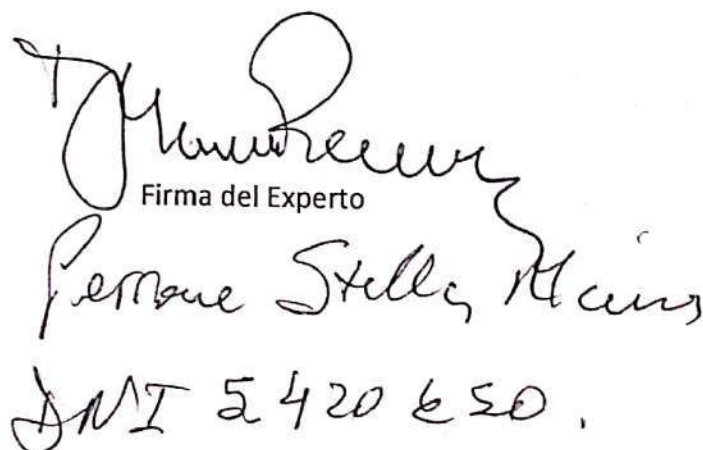 Firma del Experto
Perrone Stella Maris
DNI 5 420 650.